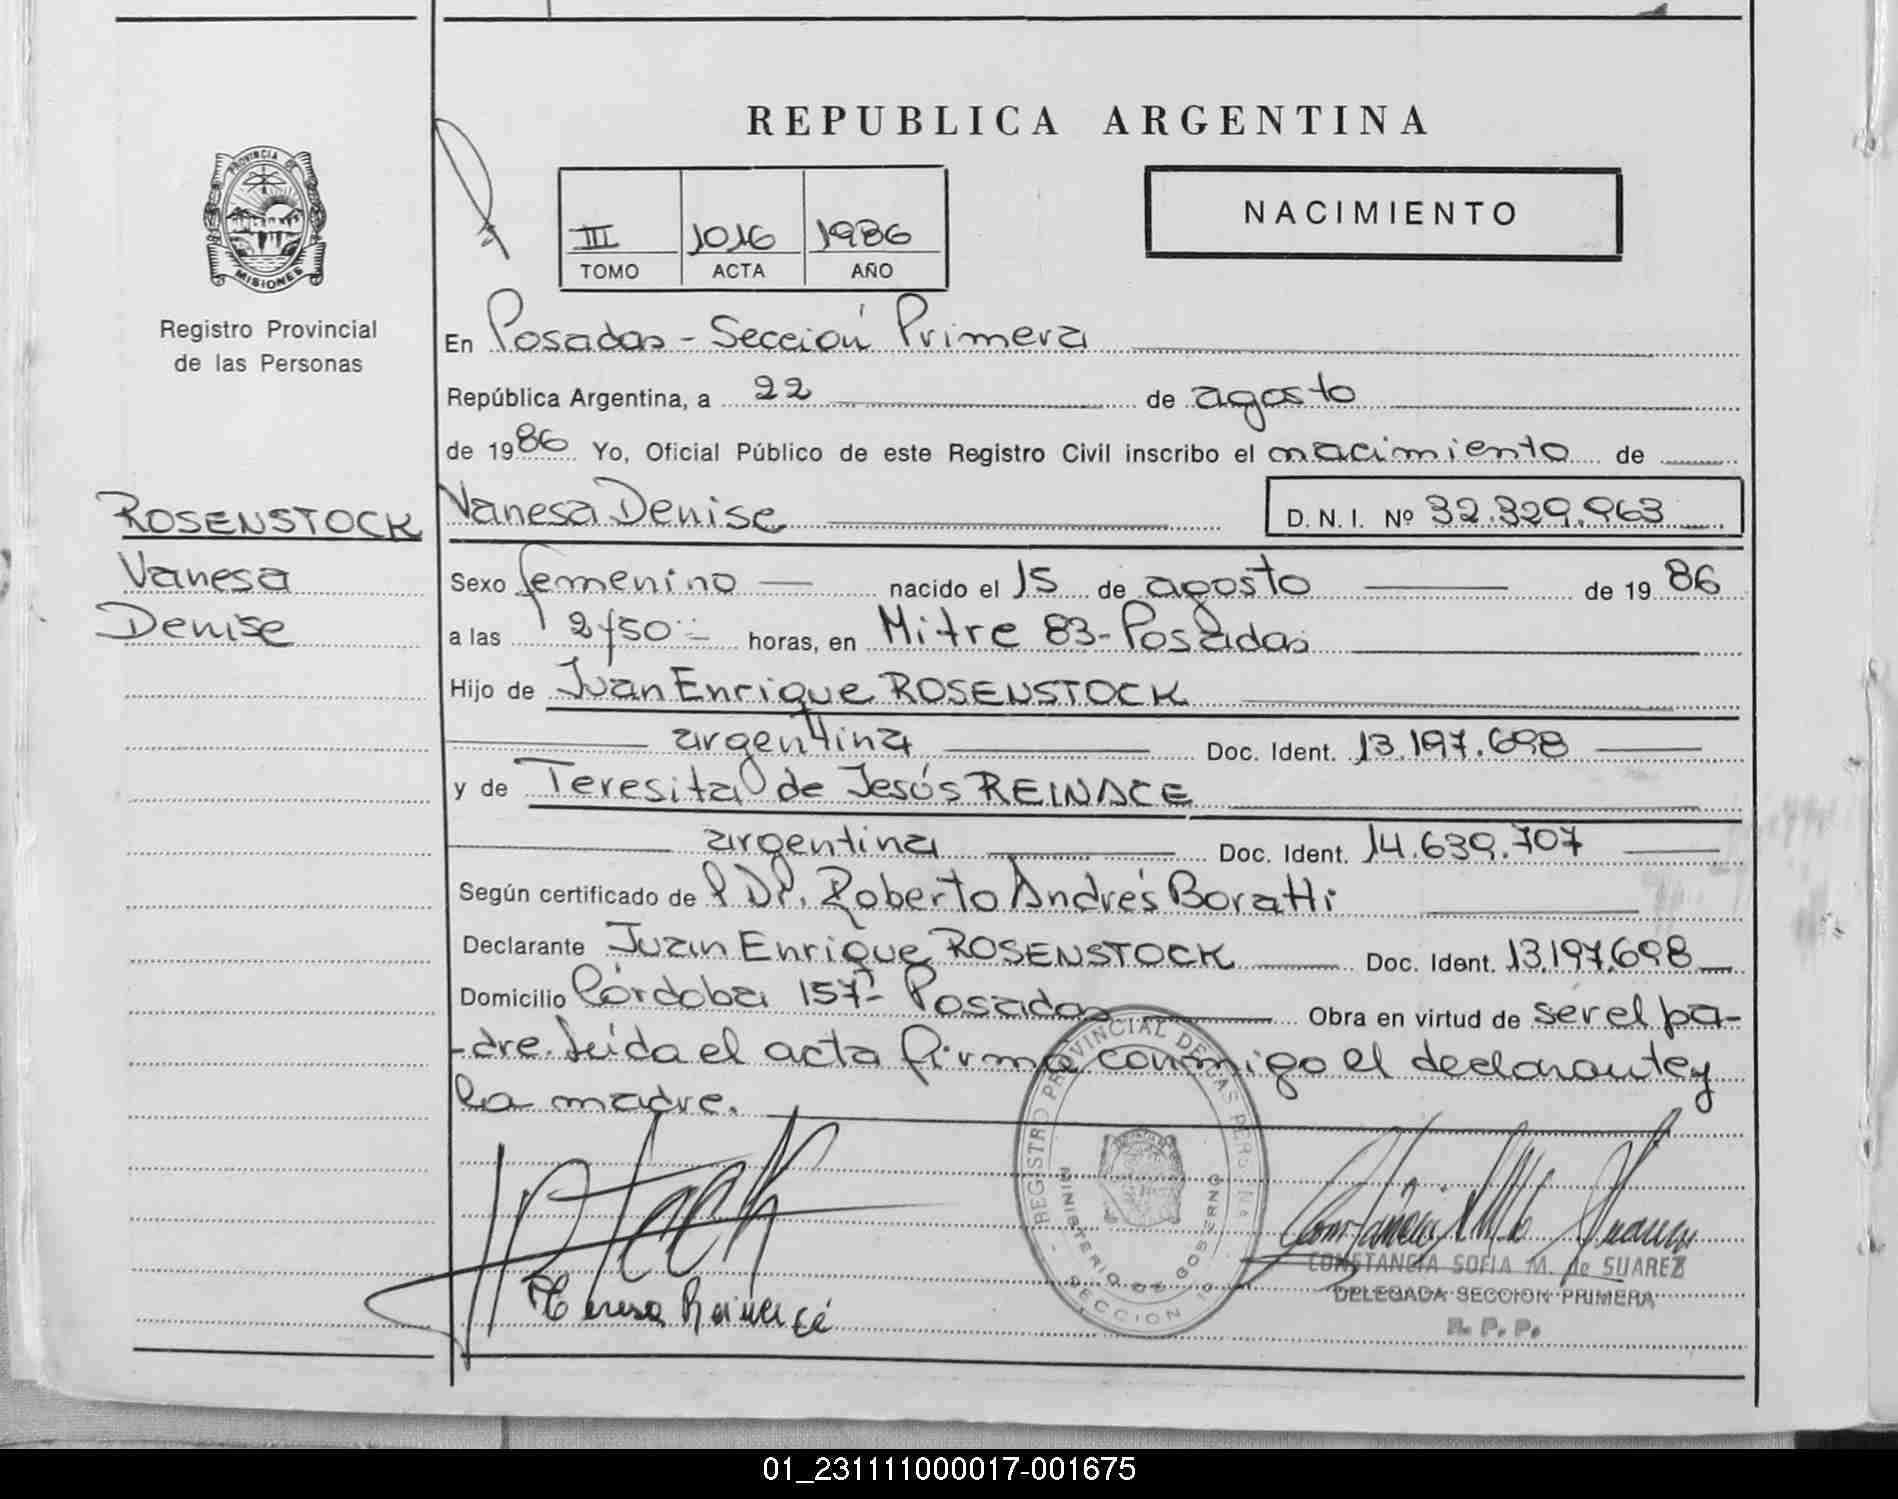 REPUBLICA ARGENTINA
PROVINCIA DE MISIONES
Registro Provincial
de las Personas
III 1016 1986
TOMO ACTA AÑO
NACIMIENTO
En Posadas - Sección Primera
República Argentina, a 22 de agosto
de 1986 Yo, Oficial Público de este Registro Civil inscribo el nacimiento de
ROSENSTOCK
Vanesa
Denise
Vanesa Denise D. N. I. Nº 32.329.963
Sexo femenino nacido el 15 de agosto de 1986
a las horas, en Mitre 83 - Posadas
Hijo de Juan Enrique ROSENSTOCK
argentina Doc. Ident. 13.197.698
y de Teresita de Jesús REINACE
argentina Doc. Ident. 14.639.707
Según certificado de Dr. Roberto Andrés Boratti
Declarante Juan Enrique ROSENSTOCK Doc. Ident. 13.197.698
Domicilio Córdoba 157 - Posadas Obra en virtud de ser el pa-
-dre. Leída el acta firma conmigo el declarante y
la madre.
REGISTRO PROVINCIAL DE LAS PERSONAS
MINISTERIO DE GOBIERNO
SECCION 1a
CONSTANCIA SOFIA M. de SUAREZ
DELEGADA SECCION PRIMERA
R. P. P.
01_231111000017-001675